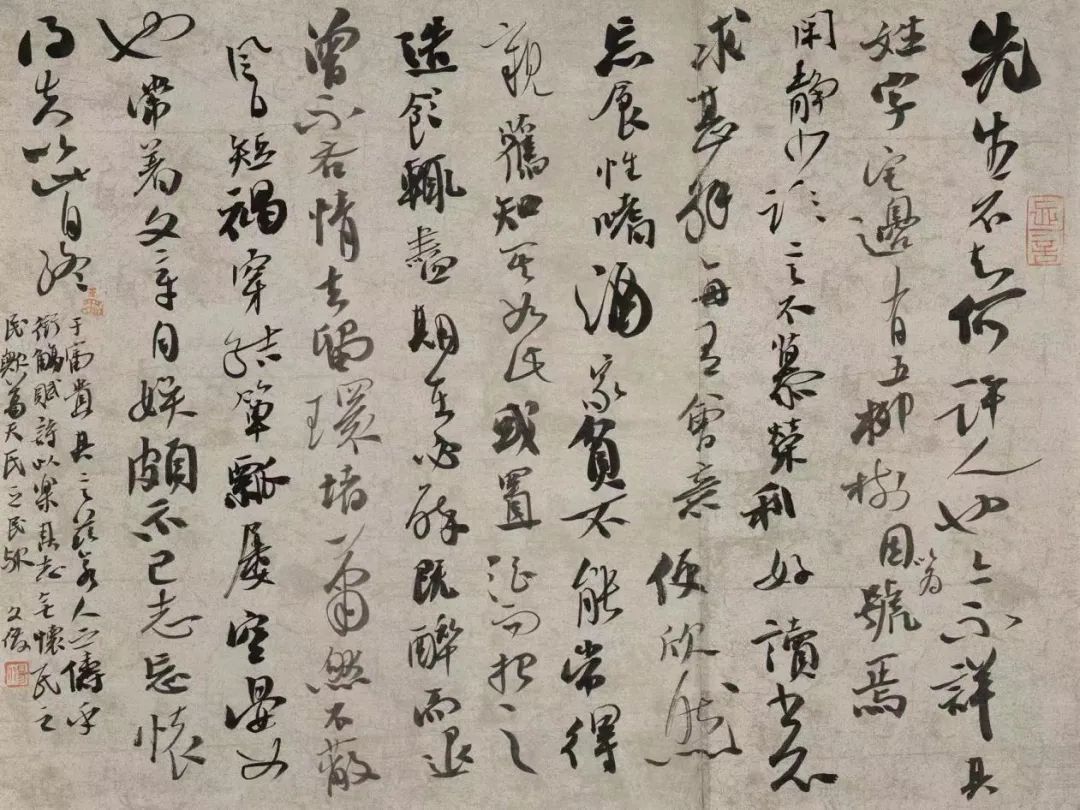 先生不知何許人也亦不詳其
姓字宅邊有五柳樹因號焉
以為
閑靜少語言不慕榮利好讀書不
求甚解每有會意便欣然
忘食性嗜酒家貧不能常得
親舊知其如此或置酒而招之
造飲輒盡期在必醉既醉而退
曾不吝情去留環堵蕭然不蔽
風日短褐穿結簞瓢屢空晏如
也常著文章自娛頗示己志忘懷
得失以此自終
于富貴其言茲若人之儔乎
銜觴賦詩以樂其志無懷氏之
民歟葛天氏之民歟